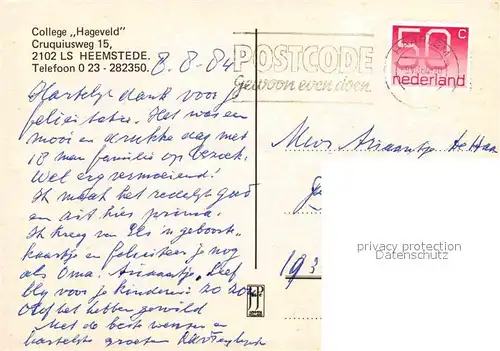 College „Hageveld"
Cruquiusweg 15,
2102 LS HEEMSTEDE.
Telefoon 0 23 - 282350.
8-8-84
POSTCODE
gewoon even doen
50 c
nederland
Hartelijk dank voor je
felicitatie. Het was een
mooi en drukke dag met
18 man familie op bezoek.
Wel erg vermoeiend!
Ik maak het redelijk goed
en zit hier prima.
Ik kreeg van Els 'n geboorte-
kaartje en feliciteer je nog
als Oma! Ariaantje, Lief
blij voor je kinderen zo zou
Olof het hebben gewild
Met de beste wensen en
hartelijke groeten
Mevr Ariaantje de Haan
193
privacy protection
Datenschutz